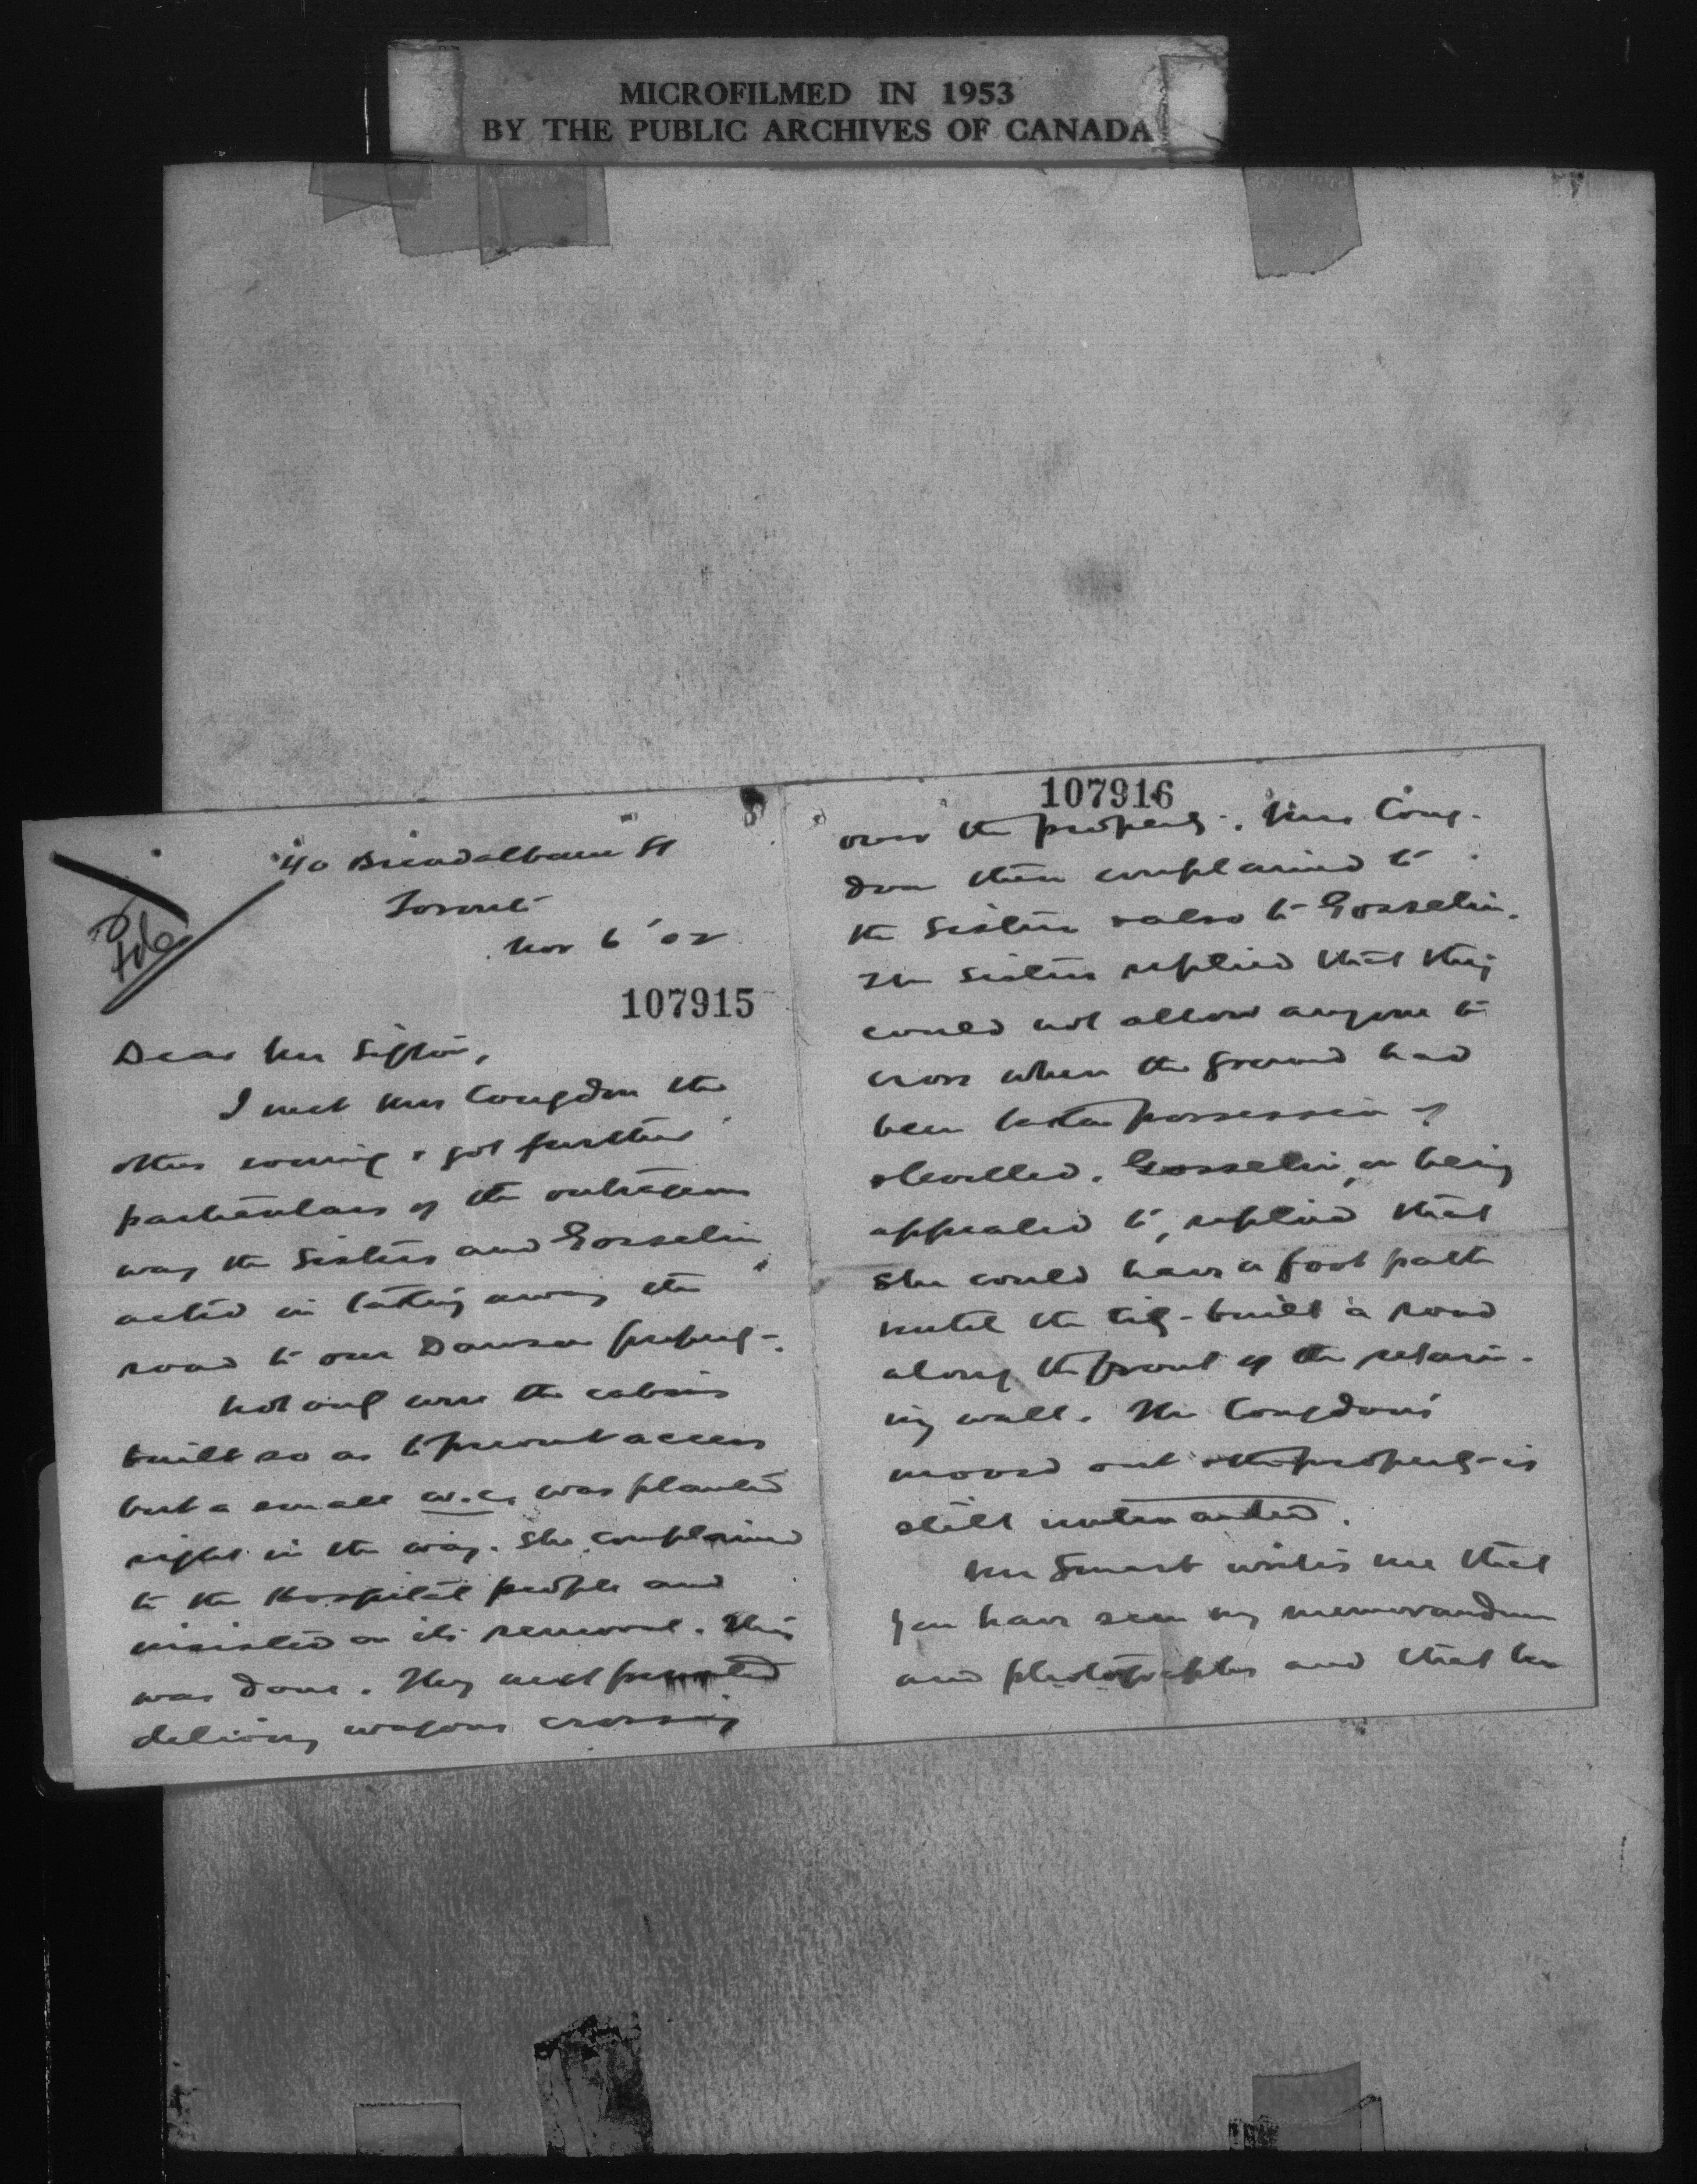 MICROFILMED IN 1953
BY THE PUBLIC ARCHIVES OF CANADA
File
40 Breadalbane St
Toronto
Nov 6 '02
107915
Dear Mr Sifton,
I met Mrs Congdon the
other evening & got further
particulars of the outrageous
way the Sisters and Gosselin
acted in taking away the
road to our Dawson property.
Not only were the cabins
built so as to prevent access
but a small w.c. was planted
right in the way. She complained
to the Hospital people and
insisted on its removal. This
was done. They next prevented
delivery wagons crossing
107916
over the property. Mrs Cong-
don then complained to
the Sisters & also to Gosselin.
The Sisters replied that they
could not allow anyone to
cross when the ground had
been taken possession of
& levelled. Gosselin, on being
appealed to, replied that
she could have a foot path
until the city built a road
along the front of the retain-
ing wall. The Congdons
moved out & the property is
still untenanted.
Mr Smart writes me that
you have seen my memorandum
and photographs and that he